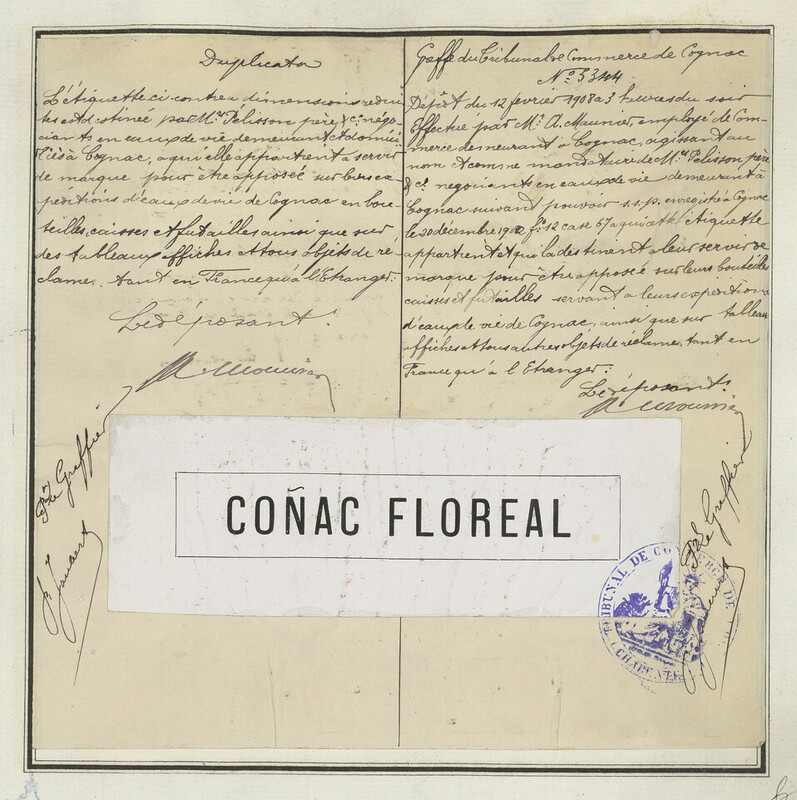 Duplicata
L'étiquette ci-contre a dimensions rédui
tes est destinée par Mrs Pélisson père & Cie négo
ciants en eaux de vie demeurant et domici
liés à Cognac, à qui elle appartient à servir
de marque pour être apposée sur leurs ex
péditions d'eaux de vie de Cognac en bou
teilles, caisses et futailles ainsi que sur
des tableaux affiches et tous objets de ré
clame, tant en France qu'à l'Etranger:
Le déposant:
Pr Le Greffier
Greffe du Tribunal de Commerce de Cognac
No 5344
Dépôt du 12 février 1908 à 3 heures du soir
Effectué par Mr A. Maunier, employé de Com
merce demeurant à Cognac, agissant au
nom et comme mandataire de Mrs Pelisson père
& Cie negociants en eaux de vie demeurant à
Cognac suivant pouvoir s.s.p. enregistré à Cognac
le 30 décembre fo 12 case 67 à qui cette étiquette
appartient et qui la destinent à leur servir de
marque pour être apposée sur leurs bouteilles
caisses et futailles servant à leurs expéditions
d'eaux de vie de Cognac, ainsi que sur tableaux
affiches et tous autres objets de réclame, tant en
France qu'à l'Etranger:
Le déposant:
Pr Le Greffier
COÑAC FLOREAL
TRIBUNAL DE COMMERCE DE
CHARENTE